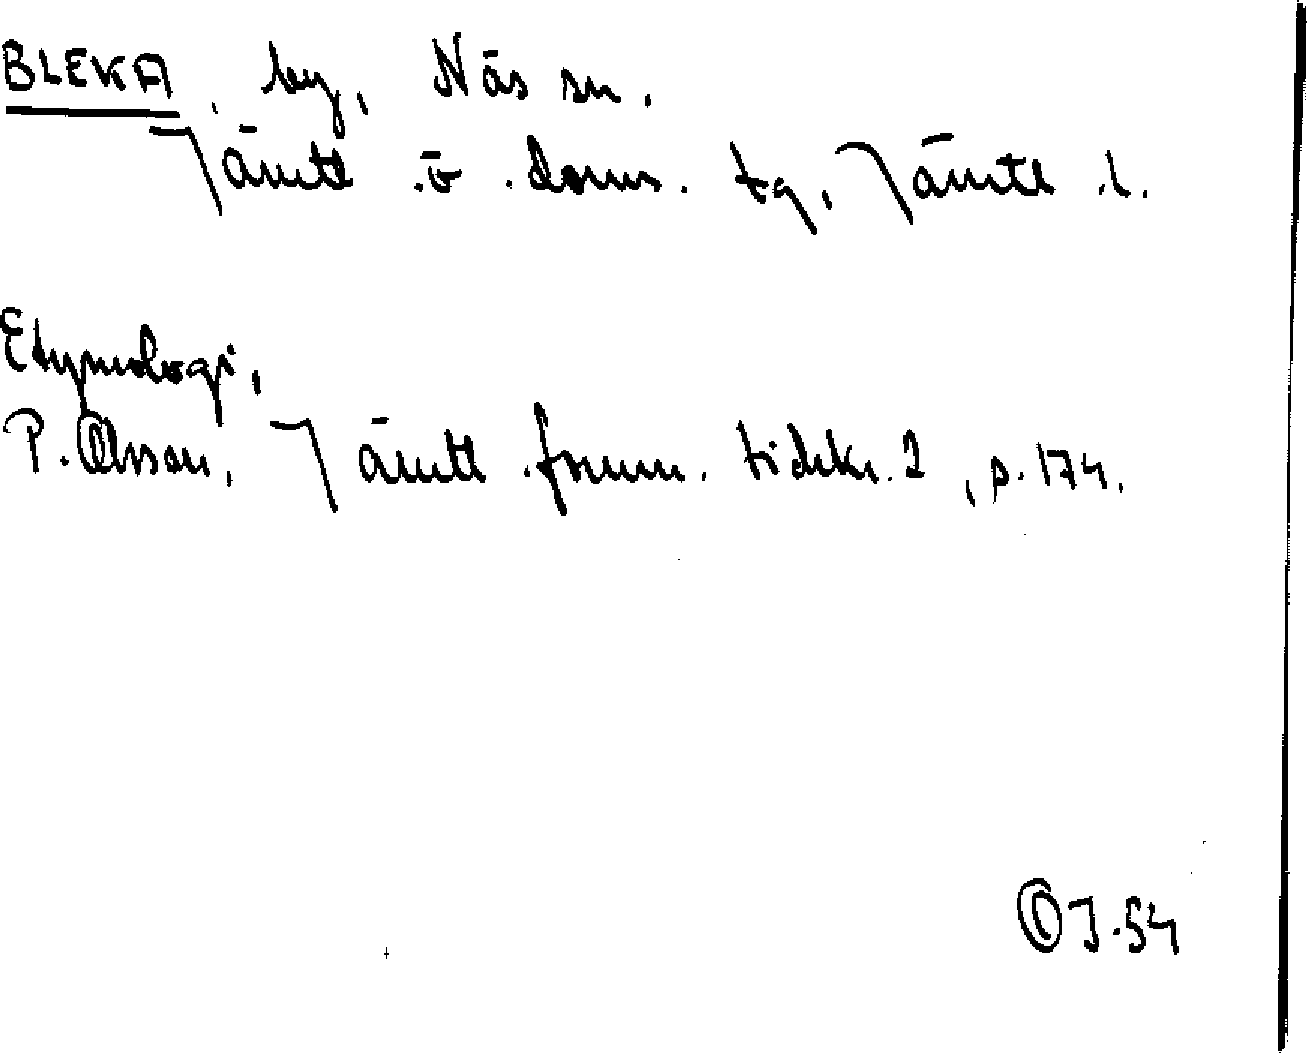 BLEKA, by, Näs sn.
Jämtl. ö. doms. tg, Jämtl. l.
Etymologi,
P. Olsson, Jämtl. fornm. tidskr. 2, s. 174.
OJ. 54